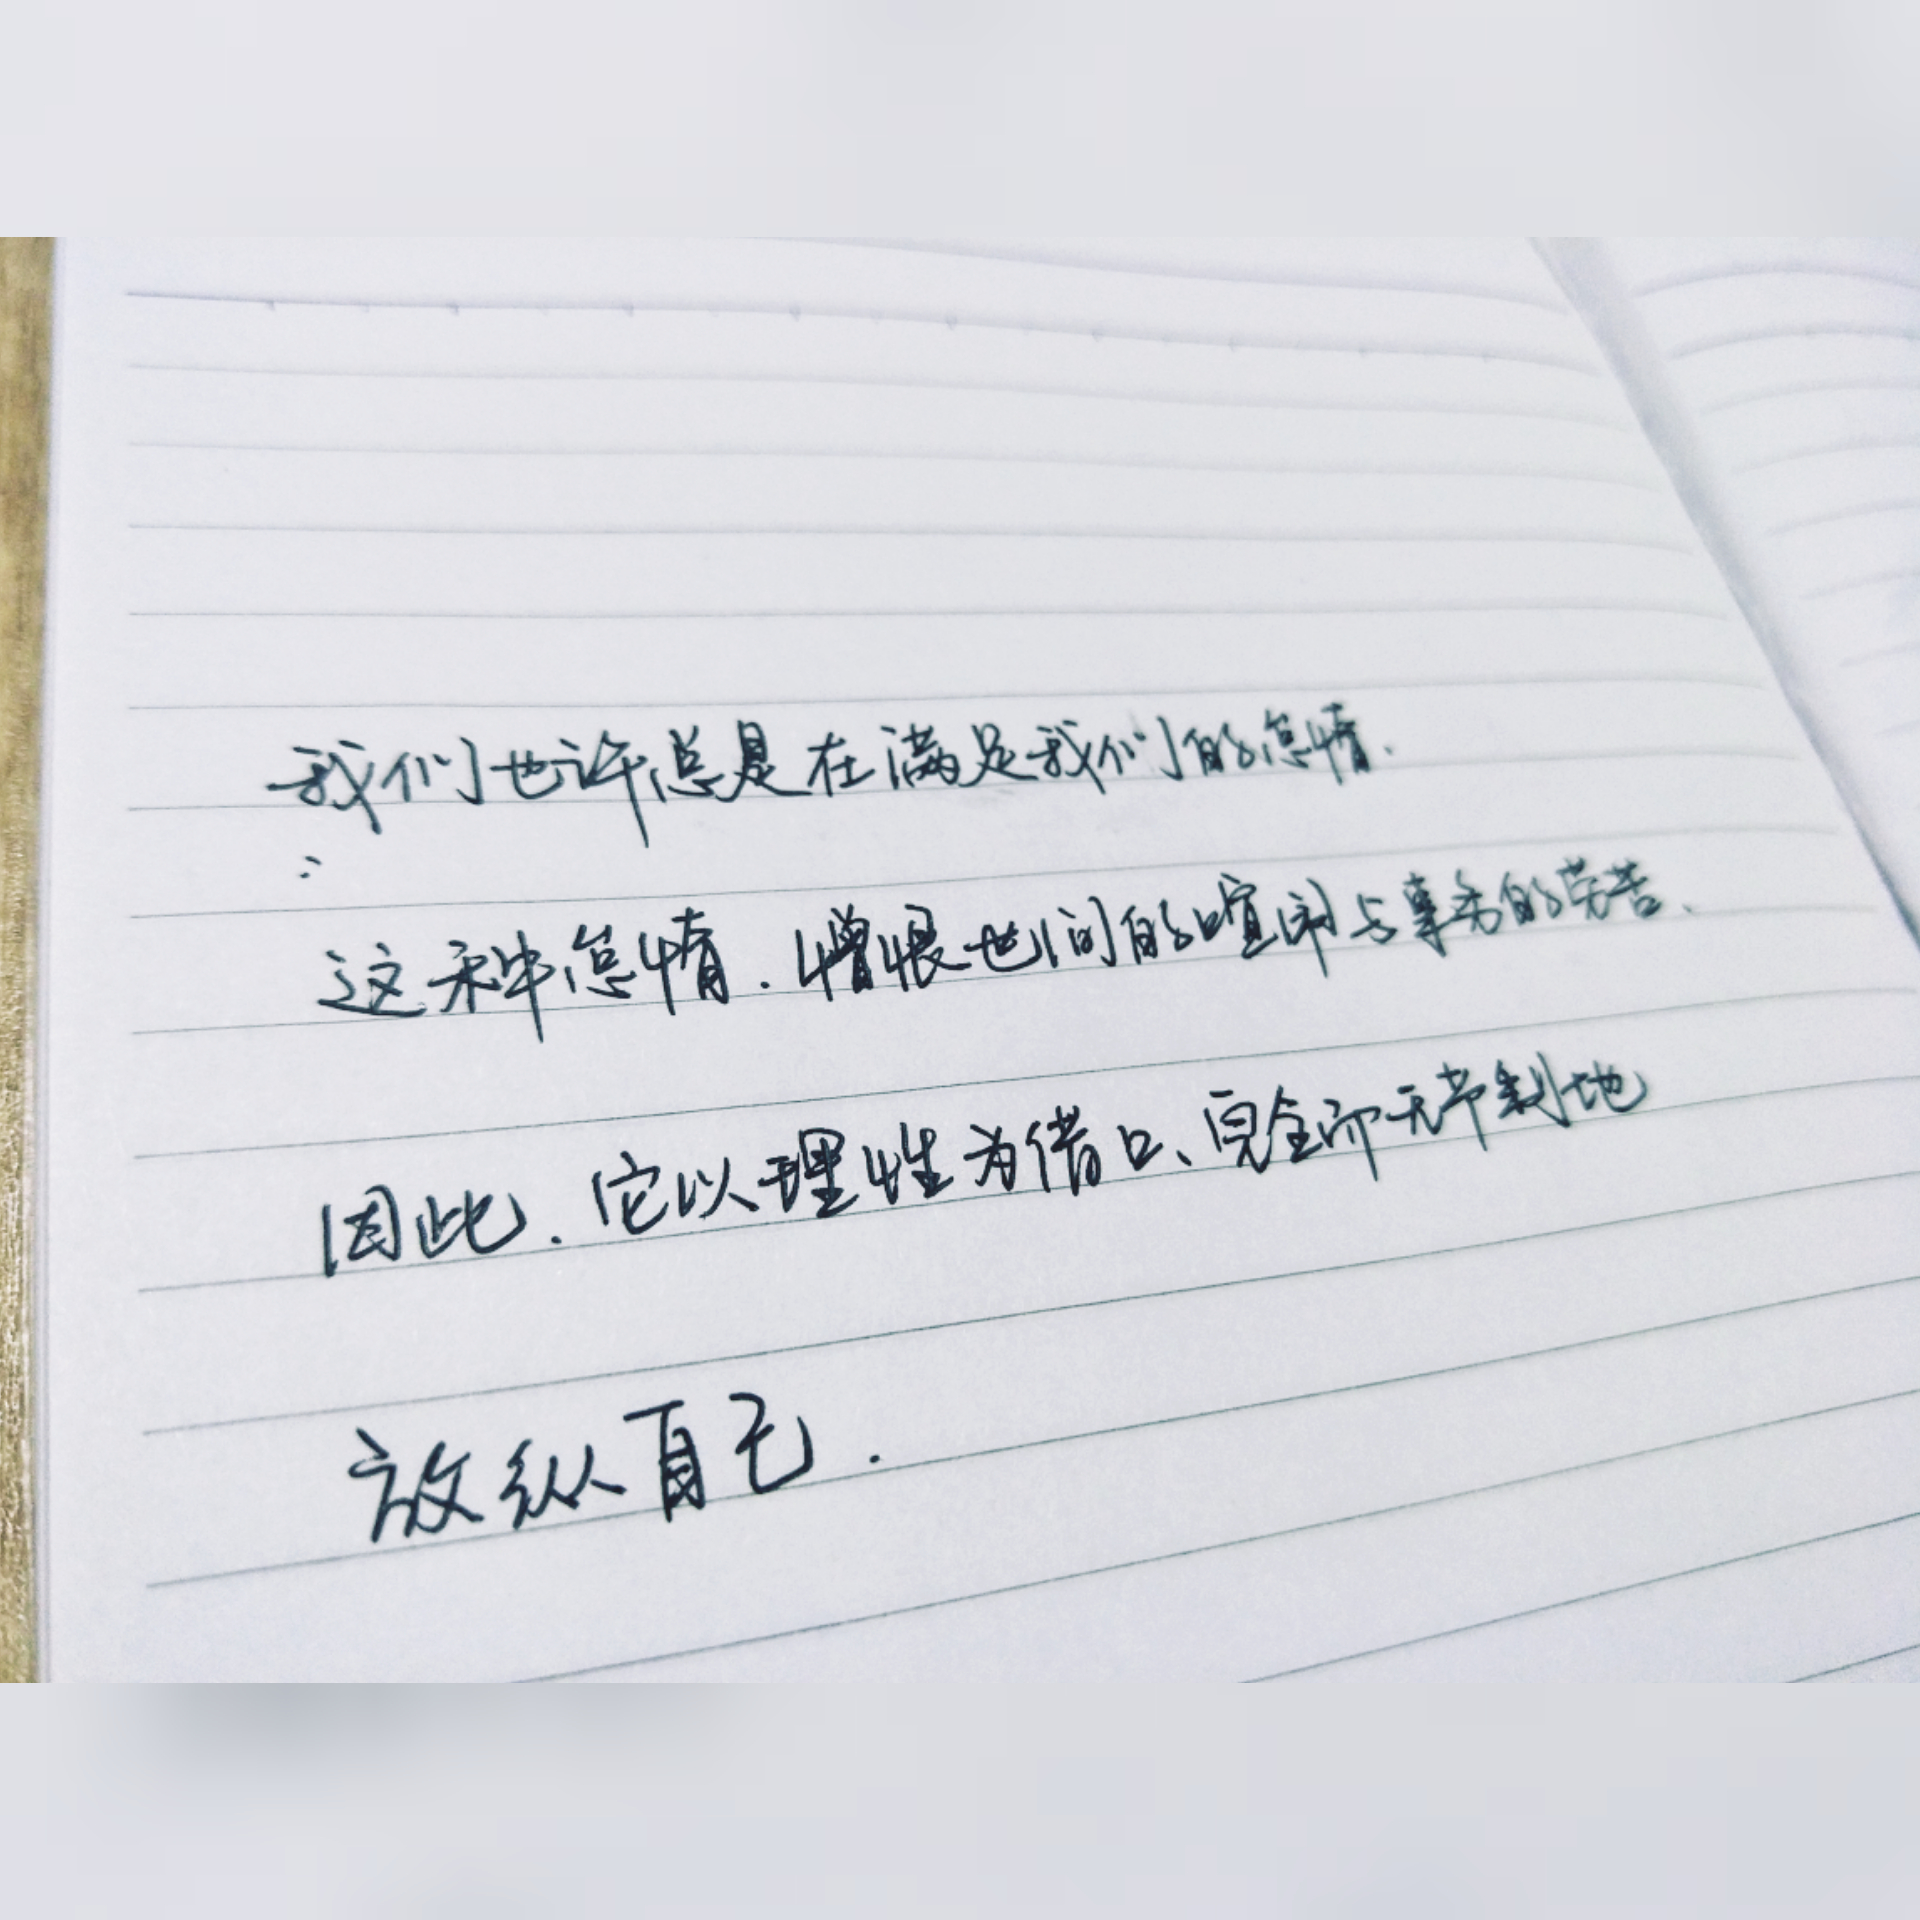 我们也许总是在满足我们的怠惰.
这种怠惰.憎恨世间的喧闹与事务的劳苦、
因此.它以理性为借口、完全而无节制地
放纵自己.